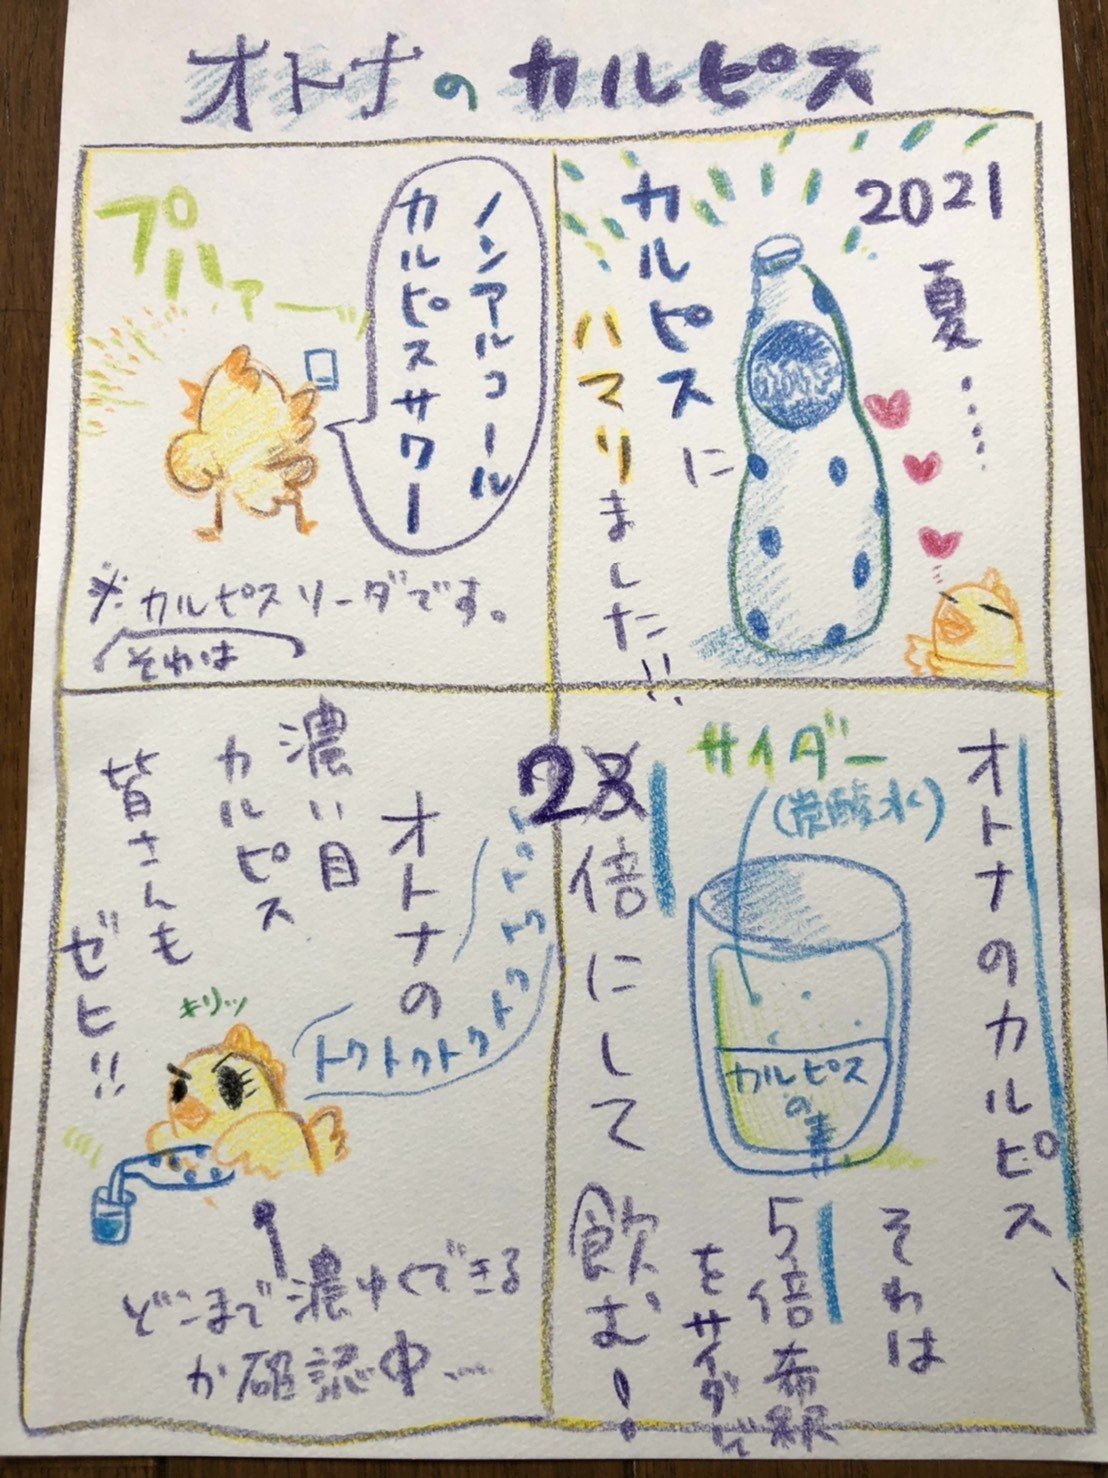 オトナのカルピス
2021
夏……
カルピスに
ハマリました!!
ノンアルコール
カルピスサワー
プハァー
※カルピスソーダです。
それは
オトナのカルピス、
それは
サイダー
(炭酸水)
カルピス
の素
5倍希釈
をサイダーで
2倍にして飲む!
オトナの
濃い目
カルピス
皆さんも
ゼヒ!!
トクトクトクトクトクト
キリッ
どこまで濃ゆくできる
か確認中…